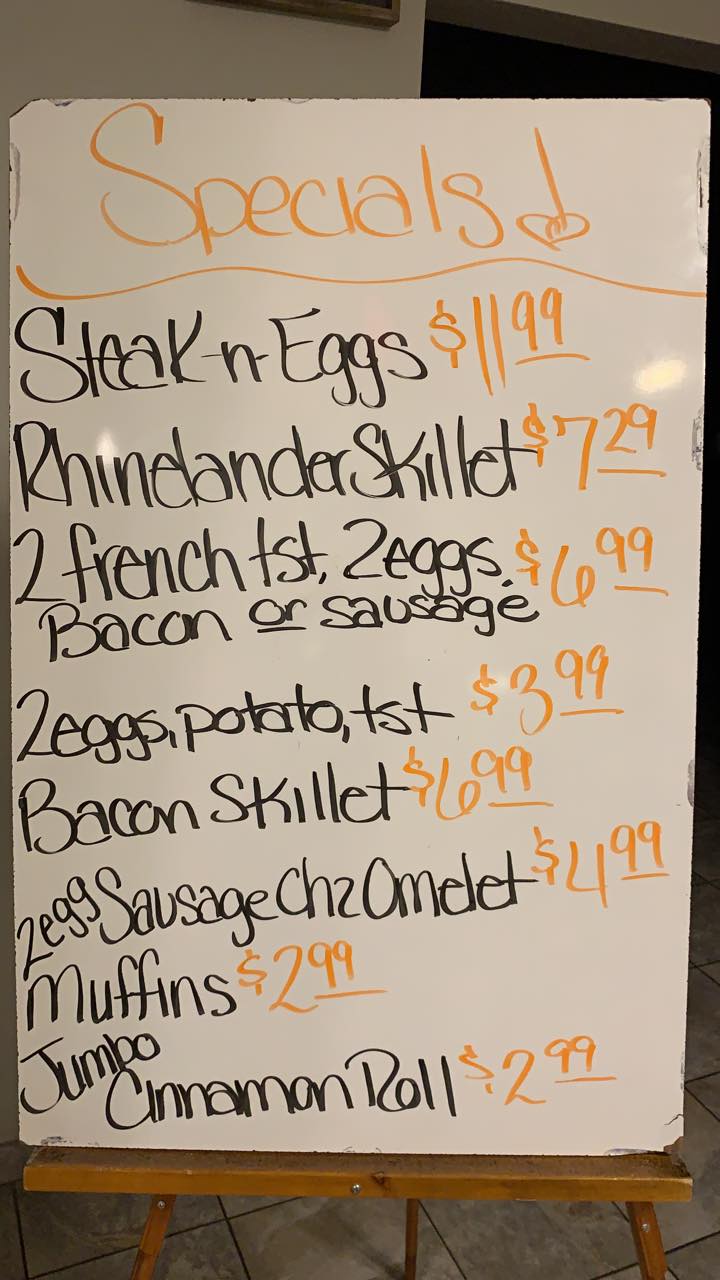 Specials!
Steak-n-Eggs $11.99
Rhinelander Skillet $7.29
2 french tst, 2eggs, $6.99
Bacon or sausage
2eggs, potato, tst $3.99
Bacon Skillet $6.99
2egg Sausage Chz Omelet $4.99
Muffins $2.99
Jumbo
Cinnamon Roll $2.99